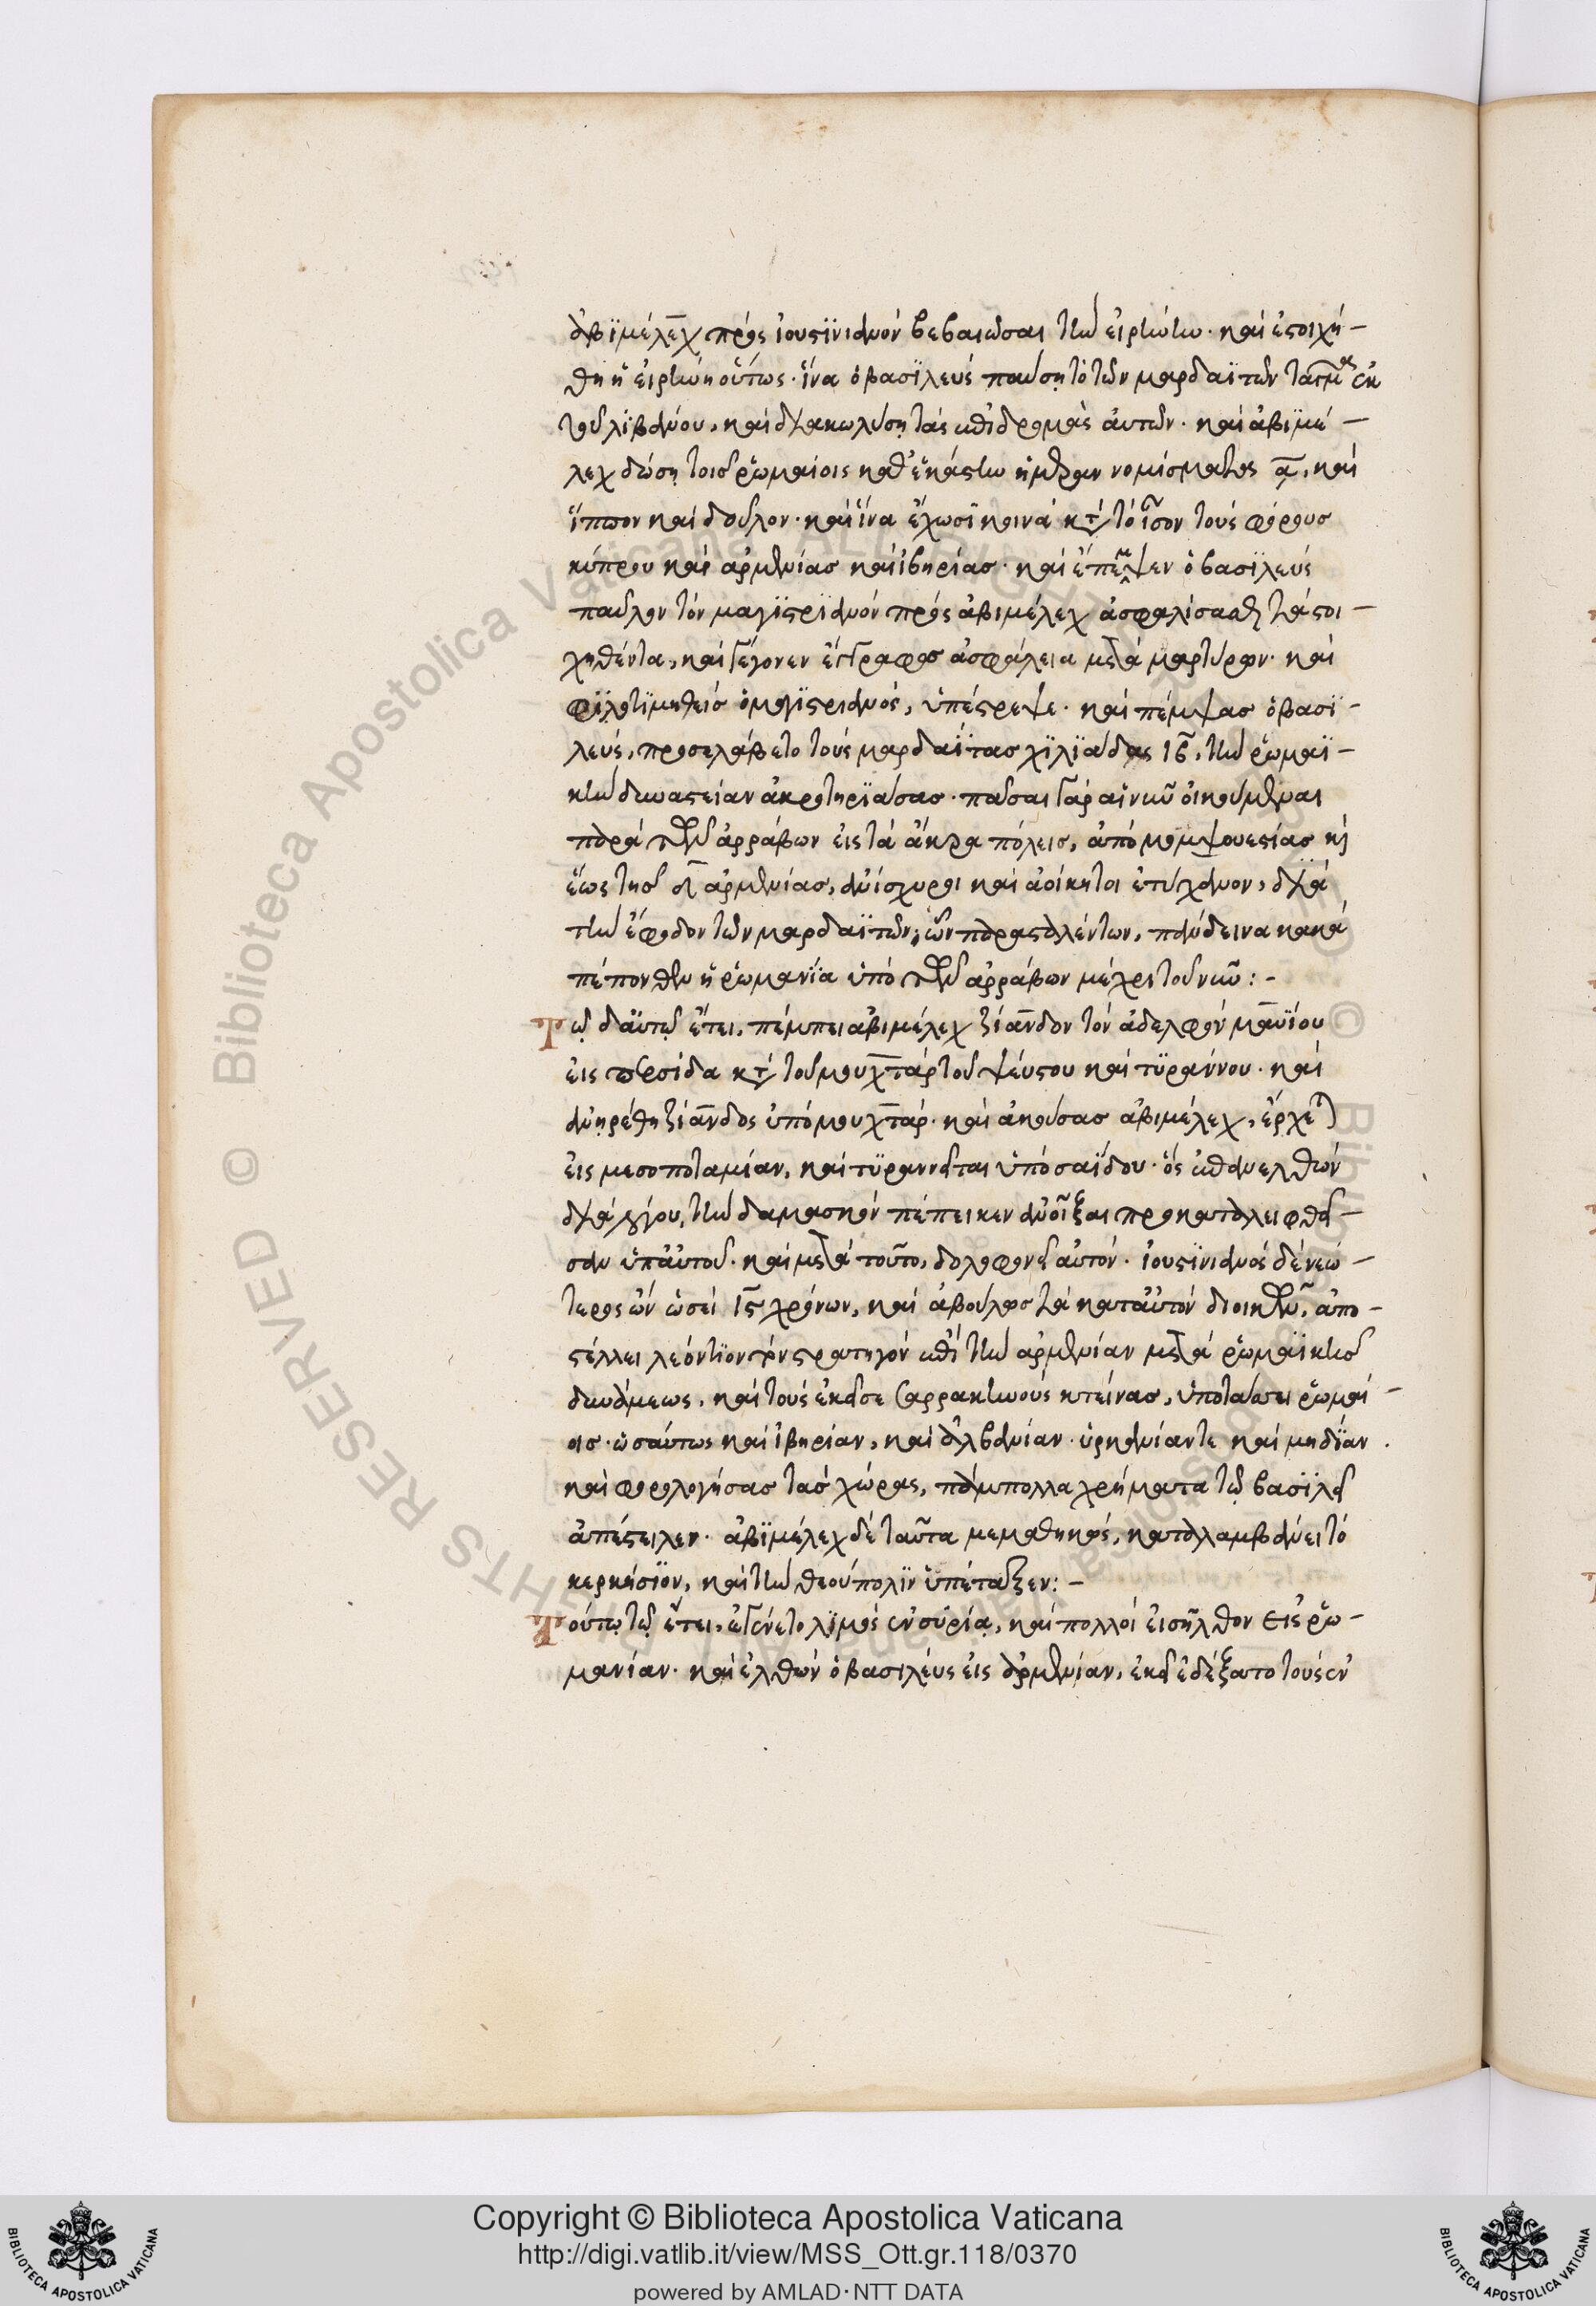 ἀβϊμέλεχ πρὸς ἰουστϊνιανὸν βεβαιῶσαι τὴν εἰρήνην· καὶ ἐστοιχή-
θη ἡ εἰρήνη οὕτως· ἵνα ὁ βασϊλεὺς παύσῃ τὸ τῶν μαρδαϊτῶν τάγμα ἐκ
τοῦ λϊβάνου, καὶ διακωλύσῃ τὰς ἐπιδρομὰς αὐτῶν· καὶ ἀβϊμέ-
λεχ δώσῃ τοῖσ ῥωμαίοις καθ' ἑκάστην ἡμέραν νομίσματος α, καὶ
ἵππον καὶ δοῦλον· καὶ ἵνα ἔχωσϊ κοινὰ κατὰ τὸ ἴσον τοὺς φόρουσ
κύπρου καὶ ἀρμενίασ καὶ ἰβηρίασ· καὶ ἔπεμψεν ὁ βασϊλεὺς
παῦλον τὸν μαγϊστρϊανὸν πρὸς ἀβιμέλεχ ἀσφαλίσασθαι τὰ στοι-
χηθέντα, καὶ γέγονεν ἔγγραφοσ ἀσφάλεια μετὰ μαρτύρων· καὶ
φϊλοτϊμηθεὶσ ὁ μαγϊστριανὸς, ὑπέστρεψε· καὶ πέμψασ ὁ βασϊ-
λεὺς, προσελάβετο τοὺς μαρδαΐτασ χϊλϊάδας ιβ, τὴν ῥωμαϊ-
κὴν δυναστείαν ἀκρωτηρϊάσασ· πᾶσαι γὰρ αἱ νῦν οἰκούμεναι
παρὰ τῶν ἀρράβων εἰς τὰ ἄκρα πόλεισ, ἀπὸ μομψουεστίασ καὶ
ἕως τῆσ δ ἀρμενίασ, ἀνίσχυροι καὶ ἀοίκητοι ἐτύγχανον, διὰ
τὴν ἔφοδον τῶν μαρδαϊτῶν, ὧν παρασταλέντων, πάνδεινα κακὰ
πέπονθεν ἡ ῥωμανΐα ὑπὸ τῶν ἀρράβων μέχρι τοῦ νῦν:-
τῷ δ' αὐτῷ ἔτει, πέμπει ἀβιμέλεχ ζίανδον τὸν ἀδελφὸν μαυΐου
εἰς περσίδα κατὰ τοῦ μουχτὰρ τοῦ ψεύστου καὶ τϋράννου· καὶ
ἀνῃρέθη ζίανδος ὑπὸ μουχτάρ· καὶ ἀκούσασ ἀβιμέλεχ, ἔρχεται
εἰς μεσοποταμίαν, καὶ τϋραννεῖται ὑπὸ σαΐδου· ὃς ἐπανελθὼν
διὰ λόγου, τὴν δαμασκὸν πέπεικεν ἀνοῖξαι προκαταλειφθεῖ-
σαν ὑπ' αὐτοῦ· καὶ μετὰ τοῦτο, δολοφονεῖ αὐτόν· ἰουστϊνιανὸς δὲ νεώ-
τερος ὢν ὡσεὶ ις χρόνων, καὶ ἀβούλωσ τὰ κατ' αὐτὸν διοικῶν, ἀπο-
στέλλει λεόντϊον τὸν στρατηγὸν ἐπὶ τὴν ἀρμενίαν μετὰ ῥωμαϊκῆσ
δυνάμεως, καὶ τοὺς ἐκεῖσε σαρρακηνοὺς κτείνασ, ὑποτάσσει ῥωμαί-
οισ· ὡσαύτως καὶ ἰβηρίαν, καὶ ἀλβανίαν· ὑρκανίαν τε καὶ μηδΐαν.
καὶ φορολογήσασ τὰσ χώρας, πάμπολλα χρήματα τῷ βασϊλεῖ
ἀπέστειλεν· ἀβϊμέλεχ δὲ ταῦτα μεμαθηκὼς, καταλαμβάνει τὸ
κερκήσϊον, καὶ τὴν θεούπολϊν ὑπέταξεν:-
τούτῳ τῷ ἔτει, ἐγένετο λϊμὸς ἐν συρίᾳ, καὶ πολλοὶ εἰσῆλθον εἰς ῥω-
μανίαν· καὶ ἐλθὼν ὁ βασιλεὺς εἰς ἀρμενίαν, ἐκεῖ ἐδέξατο τοὺς ἐν
Copyright © Biblioteca Apostolica Vaticana
http://digi.vatlib.it/view/MSS_Ott.gr.118/0370
powered by AMLAD·NTT DATA